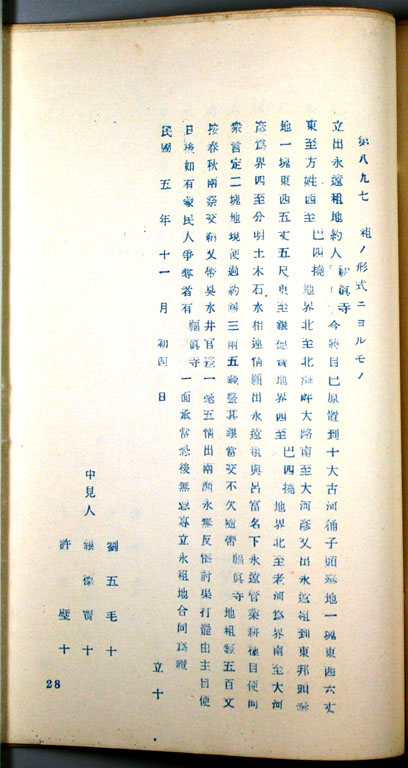 第八九七 租ノ形式ニヨルモノ
立出永遠租地約人 福眞寺 今將自己原置到十大古河 子頭 地一塊東西六丈
東至方姓西至 巴四撓 地界北至北 畔大路南至大河彥 又出永遠租到東邦頭
地一塊東西五丈五尺東至 德寶地界西至 巴四撓 地界北至老河爲界南至大河
彥爲界四至分明土木石水相連情願出永遠租與呂富名下永遠管業耕種自使同
衆言定二塊地現使過約 三兩五錢整其銀當交不欠 帶 福眞寺 地租錢五百文
按春秋兩祭交納又帶吳水井官 一毫五情出兩願永無反悔 打 由主自便
日後如有蒙民人爭奪者有 福眞寺 一面承當恐後無憑專立永租地合同爲証
立十
民國 五年十一月初四日
中見人
劉五毛十
德寶十
許壁十
28